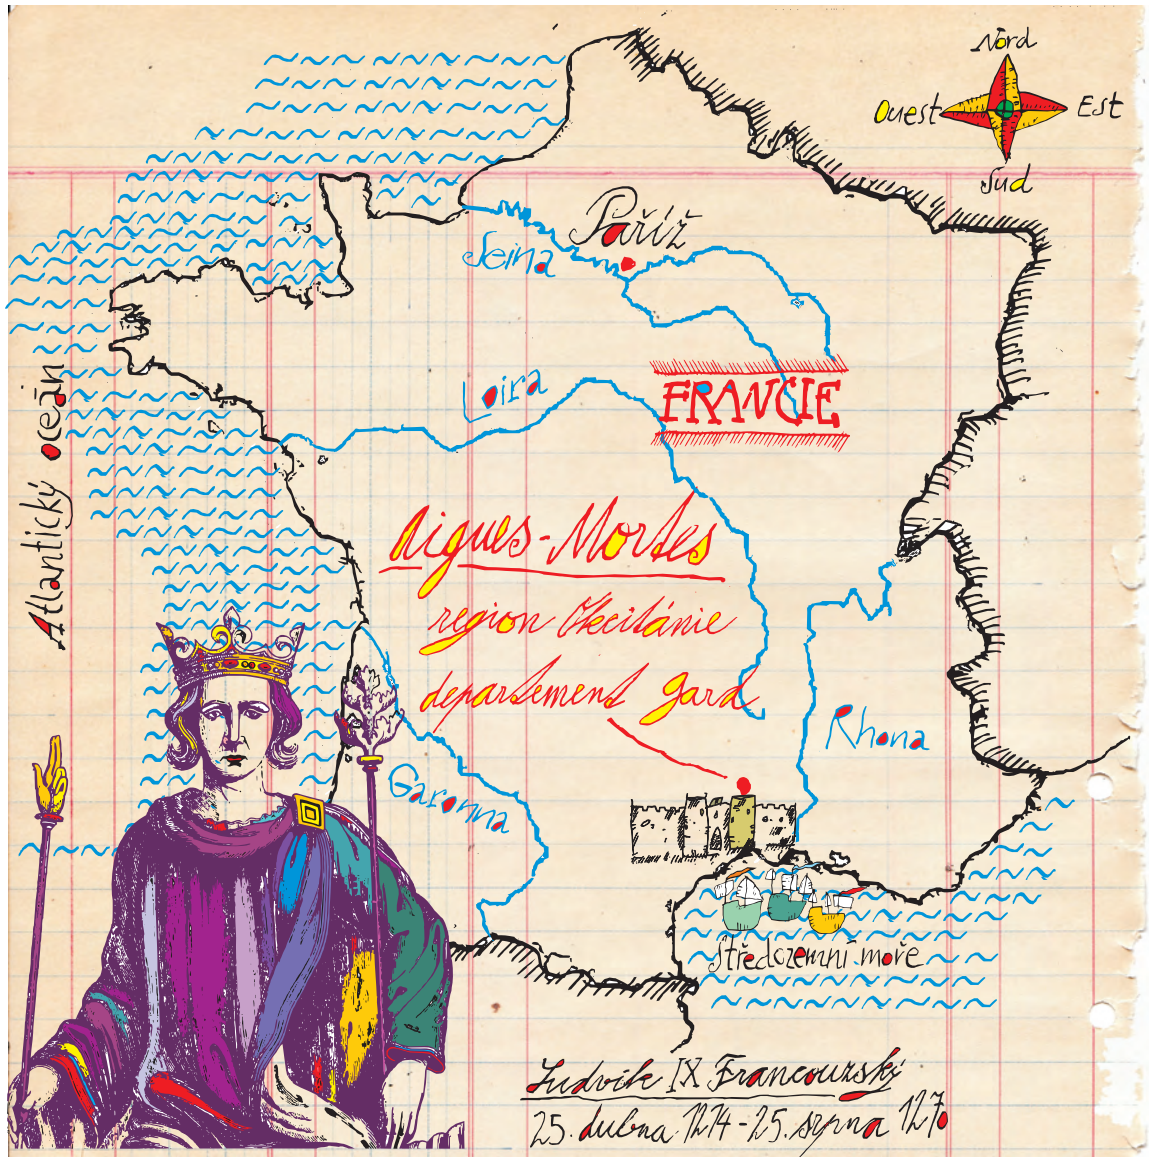 Nord
Ouest
Est
Sud
Paříž
Seina
Loira
FRANCIE
Atlantický oceãn
Aigues-Mortes
region Okcitánie
departement gard
Rhona
Garonna
Středozemní moře
Ludvik IX Francouzský
25. dubna 1214 - 25. srpna 1270